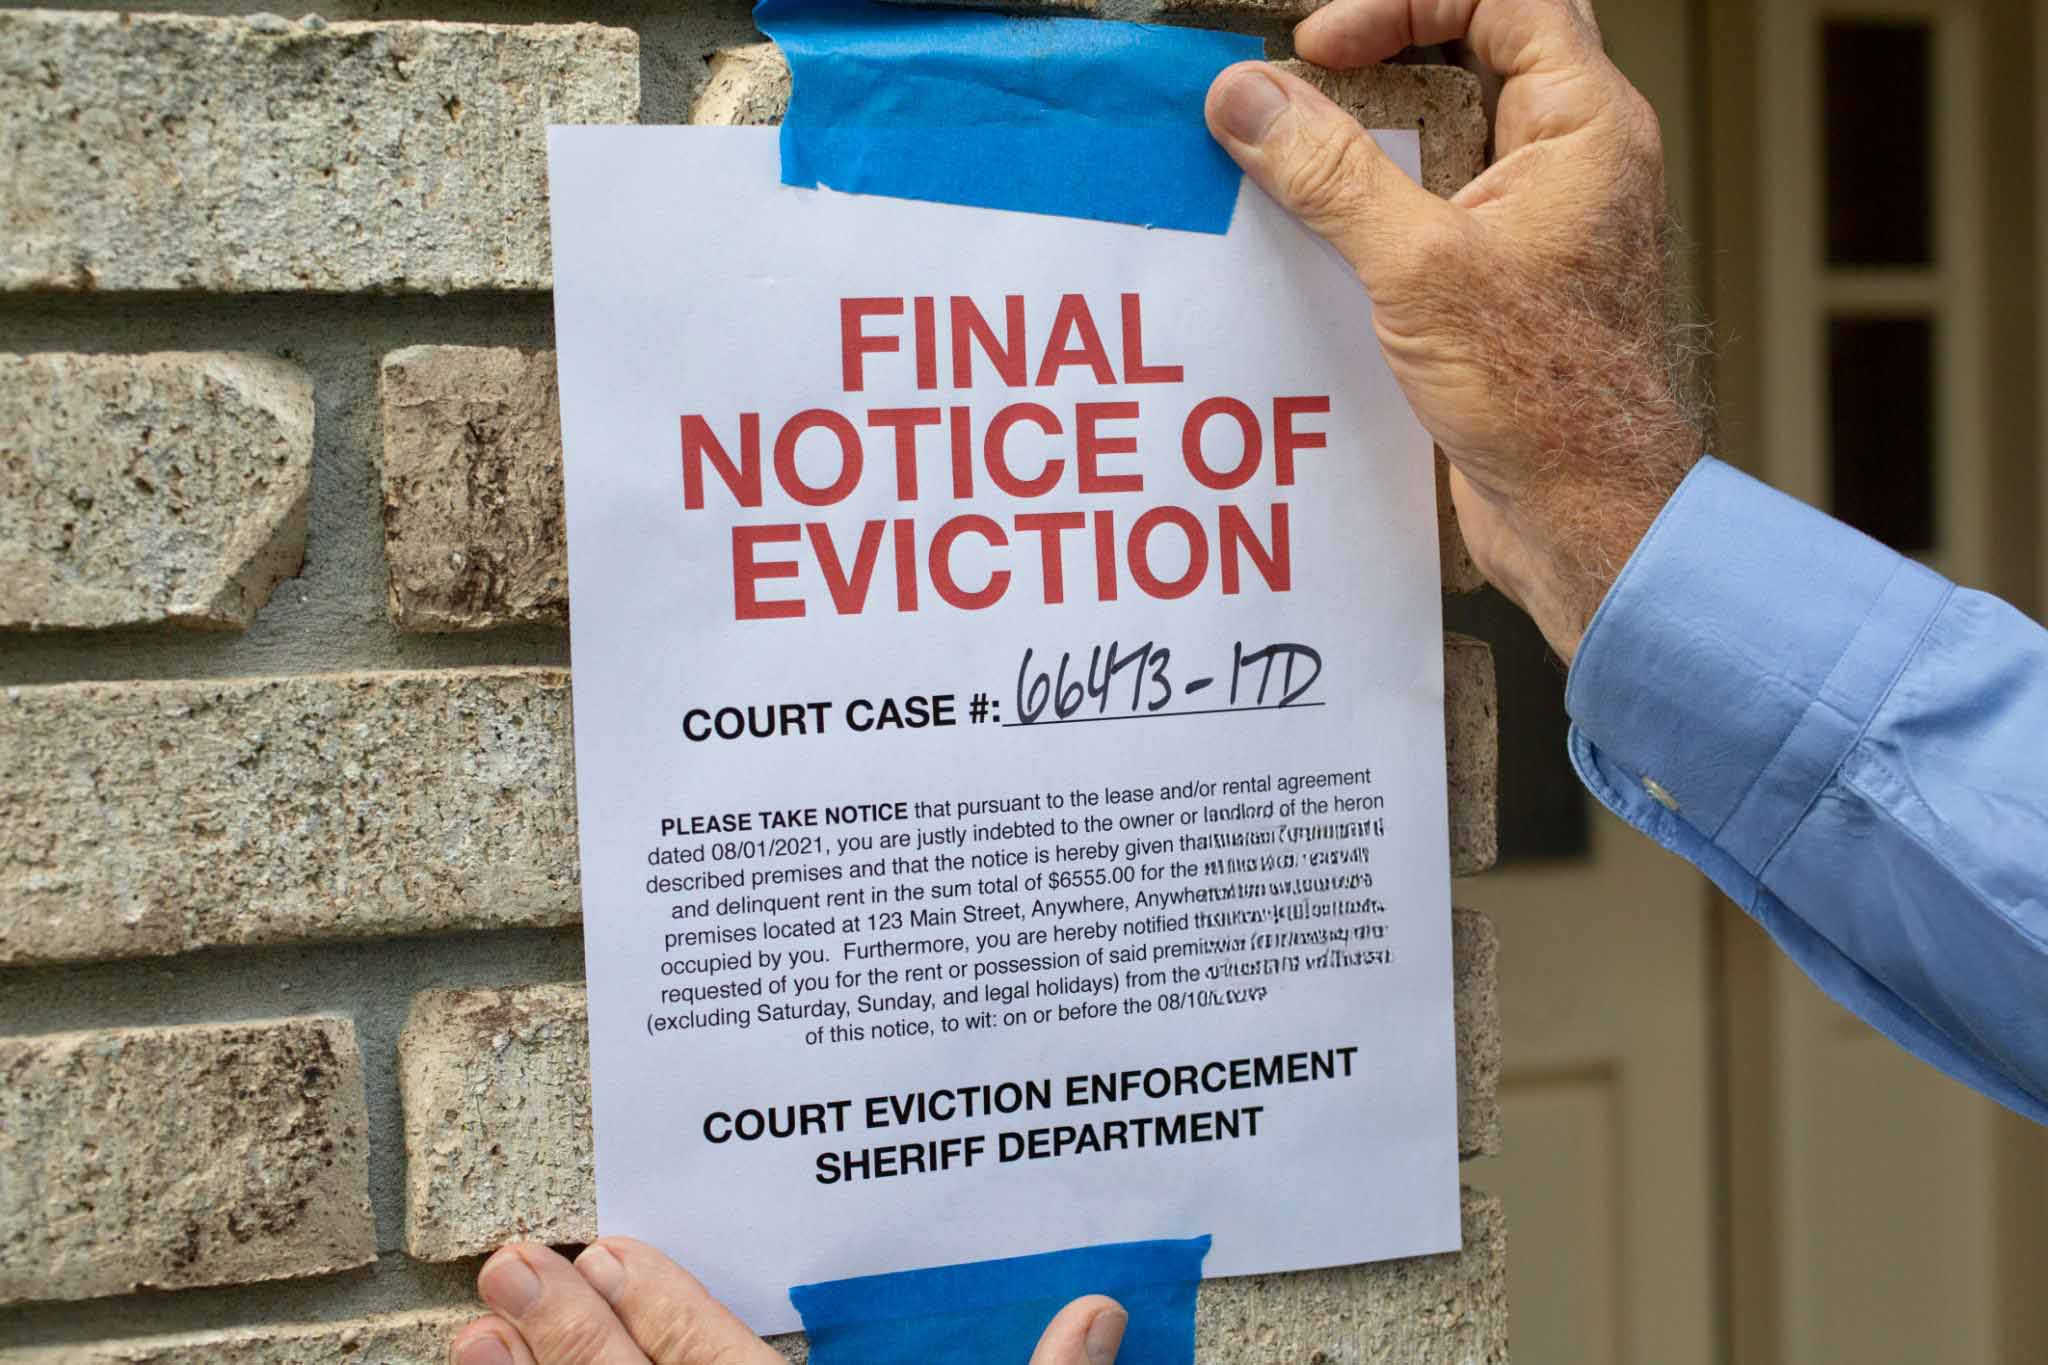 FINAL
NOTICE OF
EVICTION
COURT CASE #: 66473-17D
PLEASE TAKE NOTICE that pursuant to the lease and/or rental agreement
dated 08/01/2021, you are justly indebted to the owner or landlord of the heron
described premises and that the notice is hereby given
and delinquent rent in the sum total of $6555.00 for the
premises located at 123 Main Street, Anywhere,
occupied by you. Furthermore, you are hereby notified
requested of you for the rent or possession of said
(excluding Saturday, Sunday, and legal holidays) from the
of this notice, to wit: on or before the
COURT EVICTION ENFORCEMENT
SHERIFF DEPARTMENT